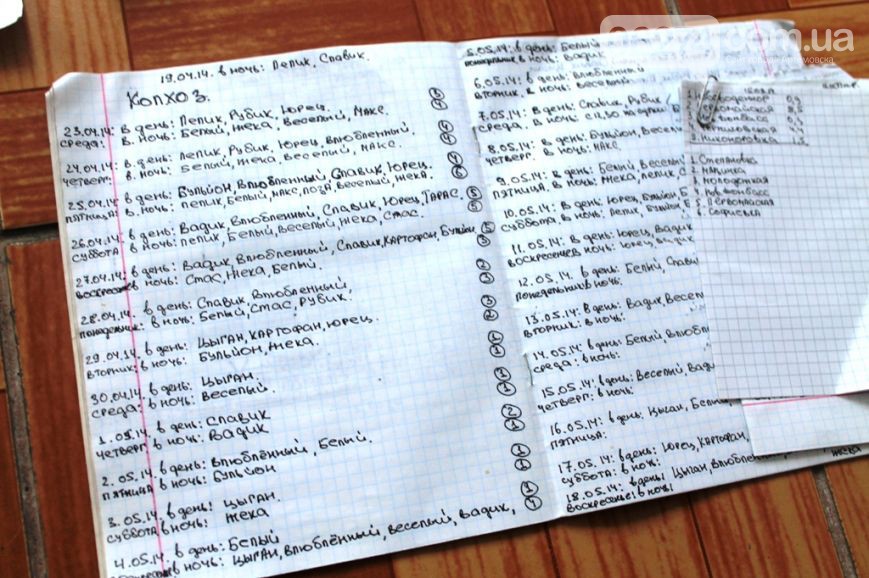 19.04.14. в ночь: Лепик, Славик.
Колхоз.
23.04.14: в день: Лепик, Рубик, Юрец.
СРЕДА: в. ночь: Белый, Жека, Веселый, Макс.
24.04.14: в. день: Лепик, Рубик, Юрец, Влюбленный
ЧЕТВЕРГ: в. ночь: Белый, Жека, Веселый, Макс.
25.04.14: в день: Бульйон, Влюбленный Славик, Юрец.
ПЯТНИЦА: в. ночь: Лепик, Белый, Макс, Веселый, Жека.
26.04.14: в день: Вадик, Влюбленный, Славик, Юрец, Тарас.
СУББОТА в ночь: Лепик, Белый, Веселый, Жека, Стас.
27.04.14: в день: Вадик, Влюбленный, Славик, Картофан, Бульйон
Воскресенье в ночь: Стас, Жека, Белый.
28.04.14: в день: Славик, Влюбленный,
понедельник: в ночь: Белый, Стас, Рубик.
29.04.14. в день: Цыган, Картофан, Юрец.
ВТОРНИК: в ночь: Бульйон, Жека.
30.04.14. в день: Цыган.
СРЕДА: в ночь: Веселый.
1.05.14. в день: Славик
ЧЕТВЕРГ в ночь: Вадик
2.05.14. в день: Влюблённый, Белый.
ПЯТНИЦА в ночь: Бульйон
3.05.14. в день: Цыган.
СУББОТА в ночь: Жека
4.05.14. в день: Белый
в ночь: Цыган, Влюблённый, Веселый, Вадик,
5.05.14: в день: Белый
понедельник в ночь: Вадик.
6.05.14: в день: Влюбленный
ВТОРНИК. в ночь: Веселый
7.05.14: в день: Славик, Рубик
СРЕДА. в ночь: с
8.05.14: в день: Бульйон, Веселы
ЧЕТВЕРГ. в ночь: Макс.
9.05.14: в день: Белый, Веселый
ПЯТНИЦА. в ночь: Жека, Лепик, С
10.05.14: в день: Юрец, Бульйон Б
СУББОТА. в ночь: Лепик, Бульйон
11.05.14: в день: Юрец, Вадик
Воскресенье в ночь: Юрец, Вадик
12.05.14. в день: Белый, Слави
понедельник в ночь:
13.05.14: в день: Вадик, Весел
ВТОРНИК: в ночь:
14.05.14: в день: Белый, Влюбл
СРЕДА: в ночь:
15.05.14: в день: Веселый, Вади
ЧЕТВЕРГ: в ночь:
16.05.14: в день: Цыган, Белы
ПЯТНИЦА:
17.05.14: в день: Юрец, Картофан,
СУББОТА: в ночь:
18.05.14: в день: Цыган, Влюбленны
Воскресенье: в ночь:
Жека
1. Степановка
2. Малинка
3. Молодежная
4. Новдонбасс
5. Первомайская
6. Софиевка
com.ua